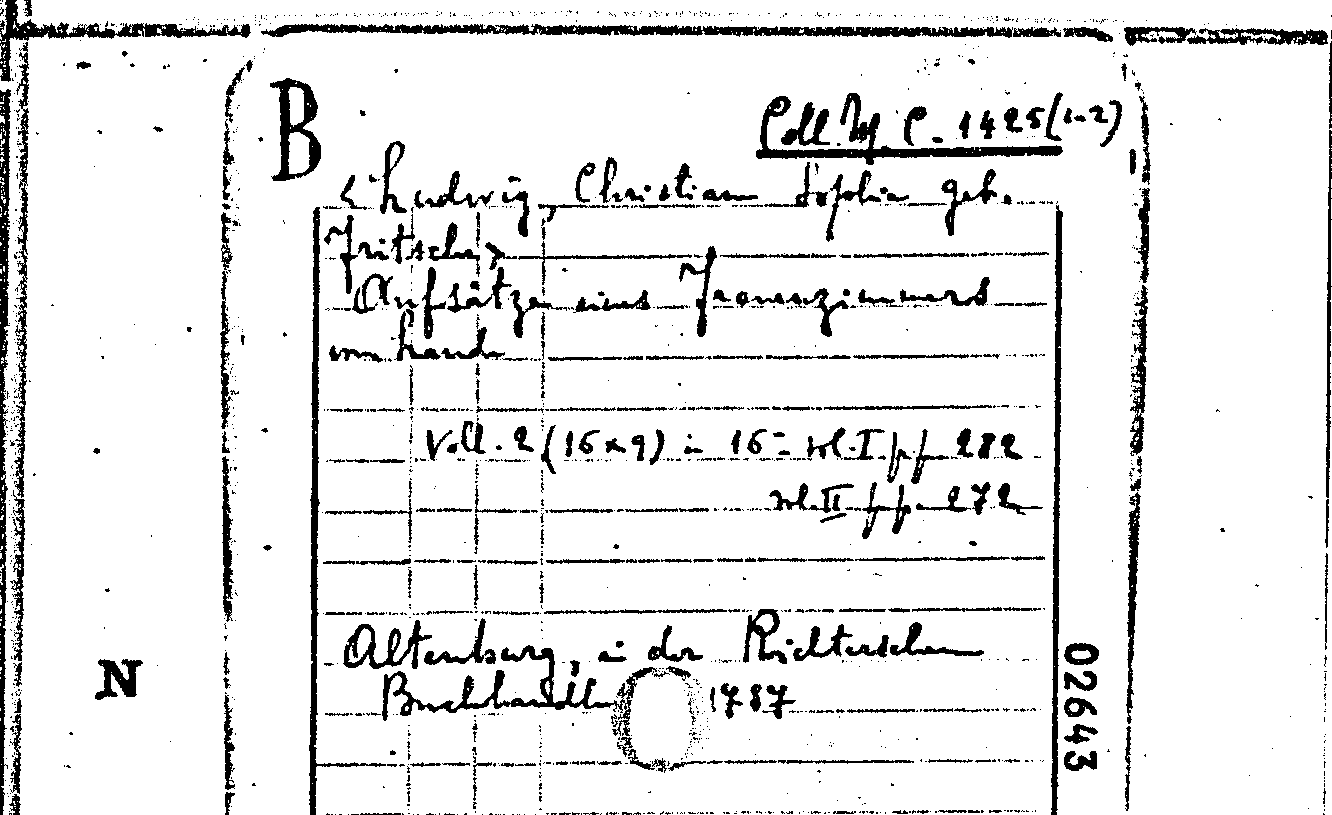 B
Coll. W. C. 1425 (1-2)
< Ludwig, Christiane Sophie geb.
Fritsche >
Aufsätze eines Frauenzimmers
vom Lande
Voll. 2 (16 x 9) in 16º vol. I pp. 282
vol. II pp. 272
Altenburg, in der Richterschen
Buchhandlung 1787
N
02643